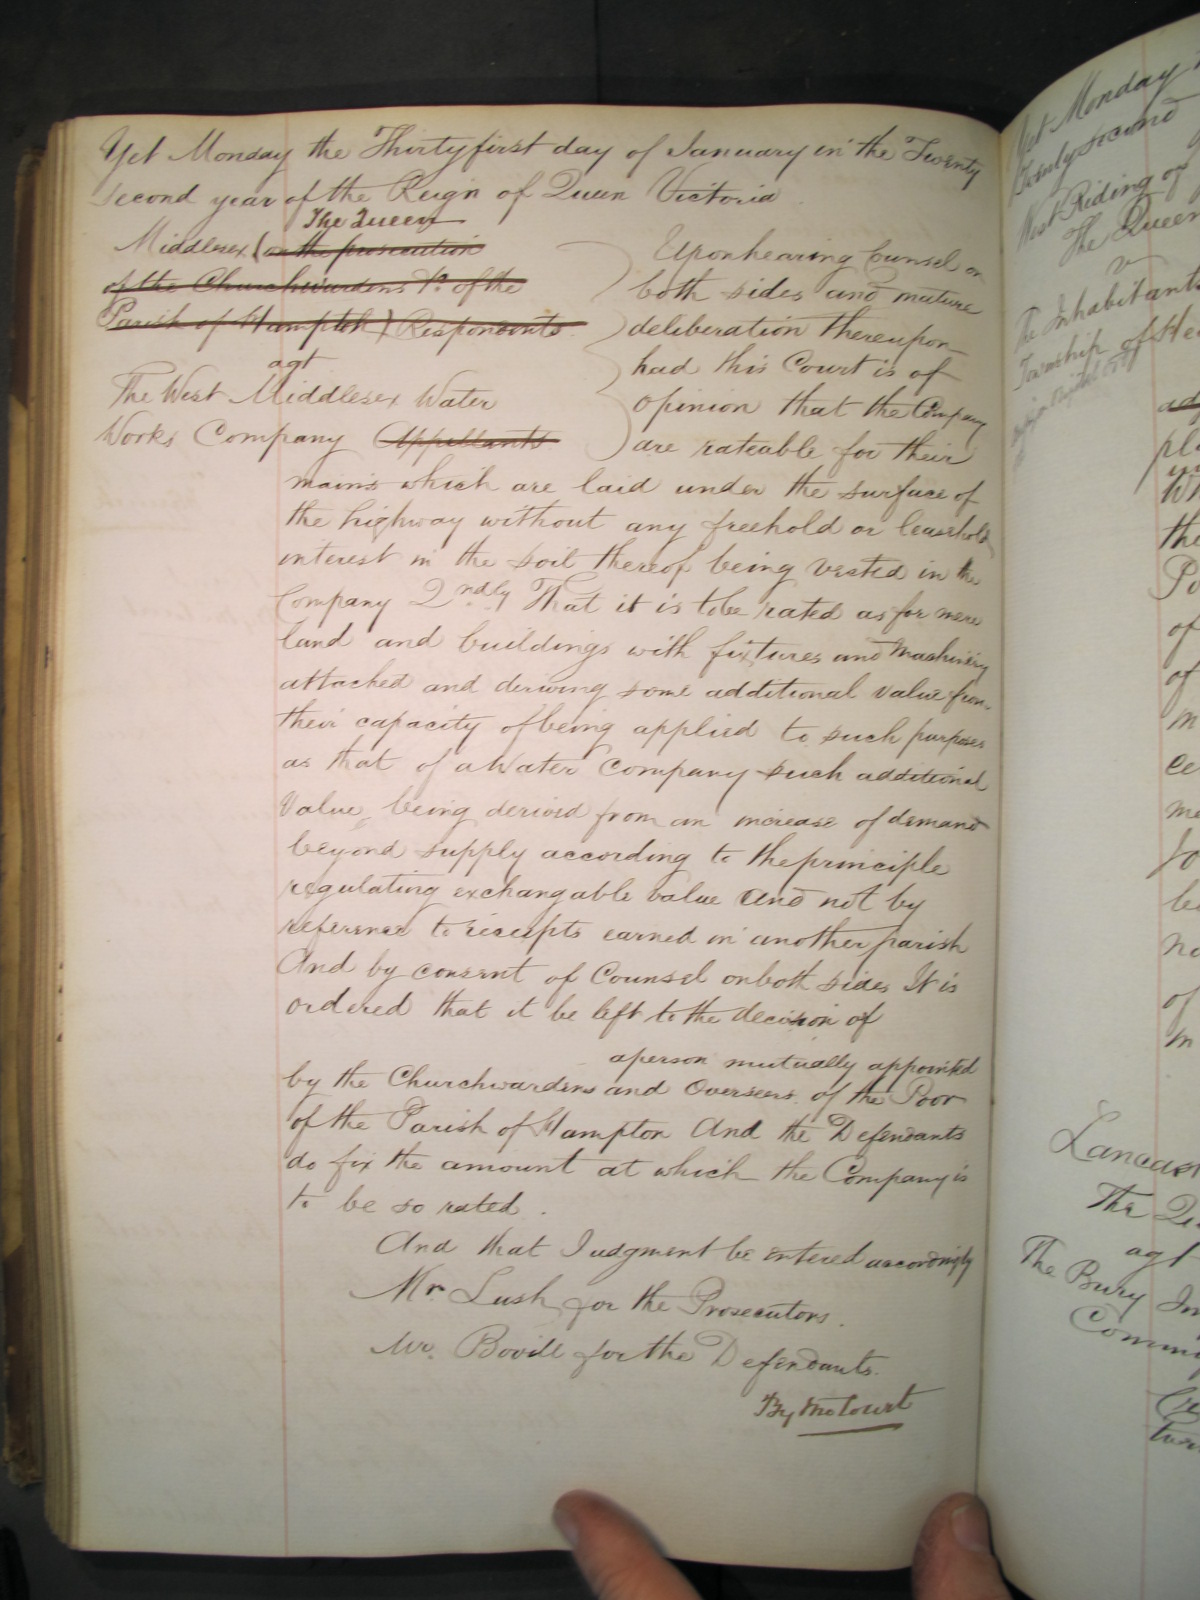 Yet Monday the Thirtyfirst day of January in the Twenty
second year of the Reign of Queen Victoria
The Queen
Middlesex (on the prosecution
of the Churchwardens &c of the
Parish of Hampton) Respondents
agt
The West Middlesex Water
Works Company Appellants
Upon hearing Counsel on
both sides and mature
deliberation thereupon
had this Court is of
opinion that the Company
are rateable for their
mains which are laid under the surface of
the highway without any freehold or leasehold
interest in the soil thereof being vested in the
Company 2ndly That it is to be rated as for mere
land and buildings with fixtures and Machinery
attached and deriving some additional value from
their capacity of being applied to such purposes
as that of a Water Company such additional
Value being derived from an increase of demand
beyond supply according to the principle
regulating exchangable value and not by
reference to receipts earned in another parish
And by consent of Counsel on both sides It is
ordered that it be left to the decision of
a person mutually appointed
by the Churchwardens and Overseers of the Poor
of the Parish of Hampton And the Defendants
do fix the amount at which the Company is
to be so rated.
And that Judgment be entered accordingly
Mr Lush for the Prosecutors.
Mr. Bovill for the Defendants.
By the Court
Yet Monday
Twenty second
West Riding of
The Queen
v
The Inhabitants
Township of
Lancaster
The
agt
The Bury